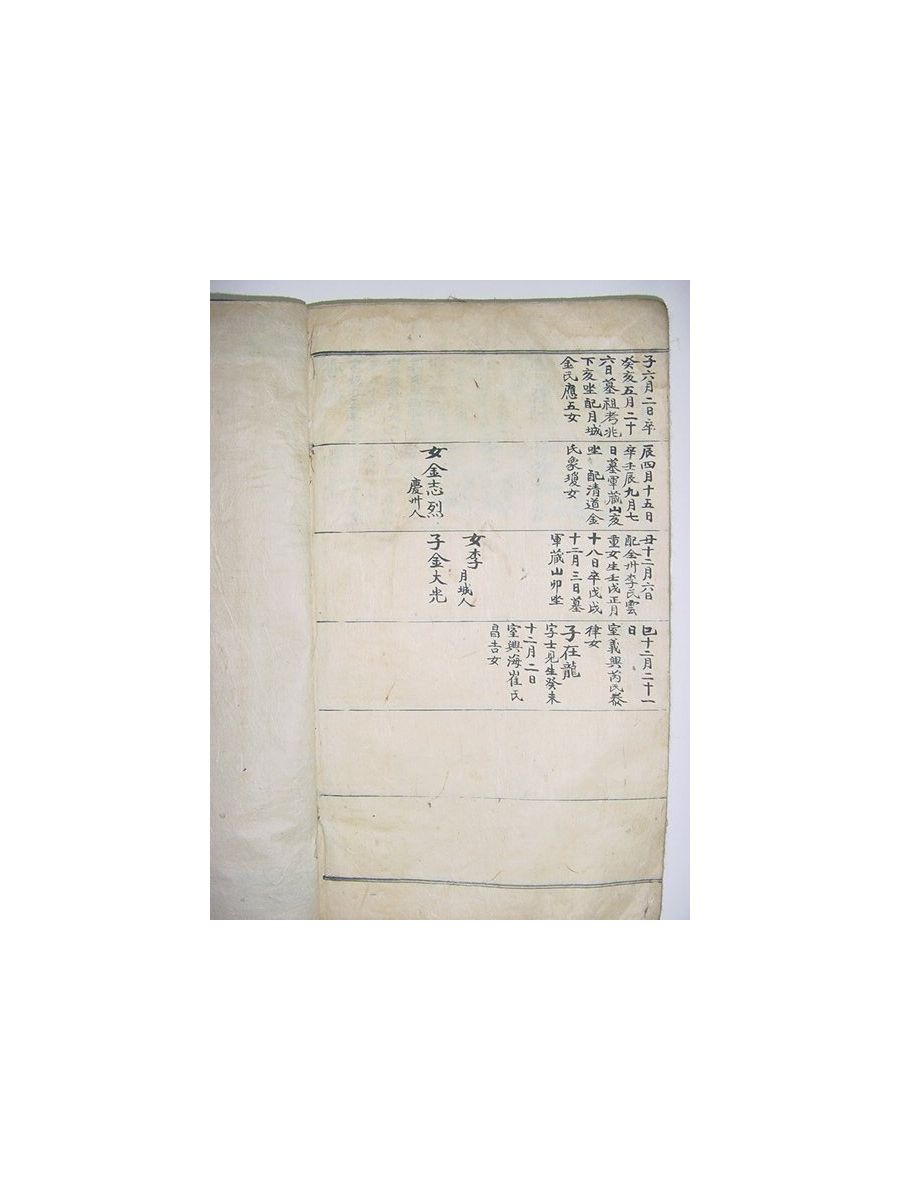 子六月二日卒
癸亥五月二十
六日墓祖考兆
下亥坐配月城
金氏應五女
辰四月十五日
卒壬辰九月七
日墓軍藏山亥
坐 配清道金
氏象瓊女
女金志烈
慶州人
丑十二月六日
配全州李氏雲
重女生壬戌正月
十八日卒戊戌
十二月三日墓
軍藏山卯坐
女李
月城人
子金大光
巳十二月二十一
日
室義興芮氏泰
律女
子在龍
字士見生癸未
十二月二日
室興海崔氏
昌吉女